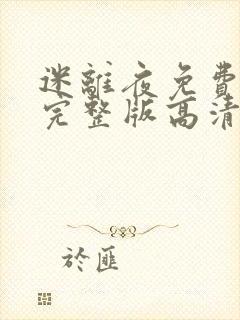 迷離夜免費
完整版高清
於匪